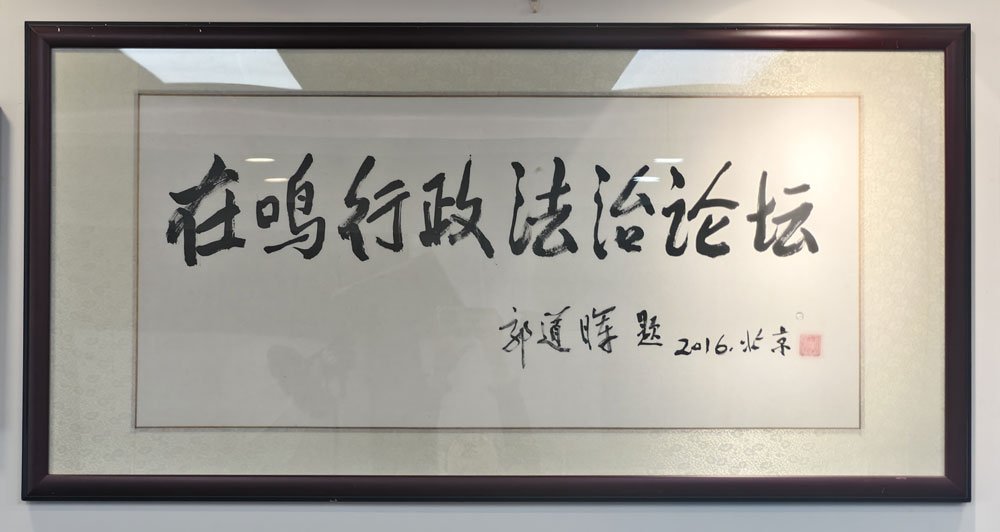 在鸣行政法治论坛
郭道晖 题 2016.北京